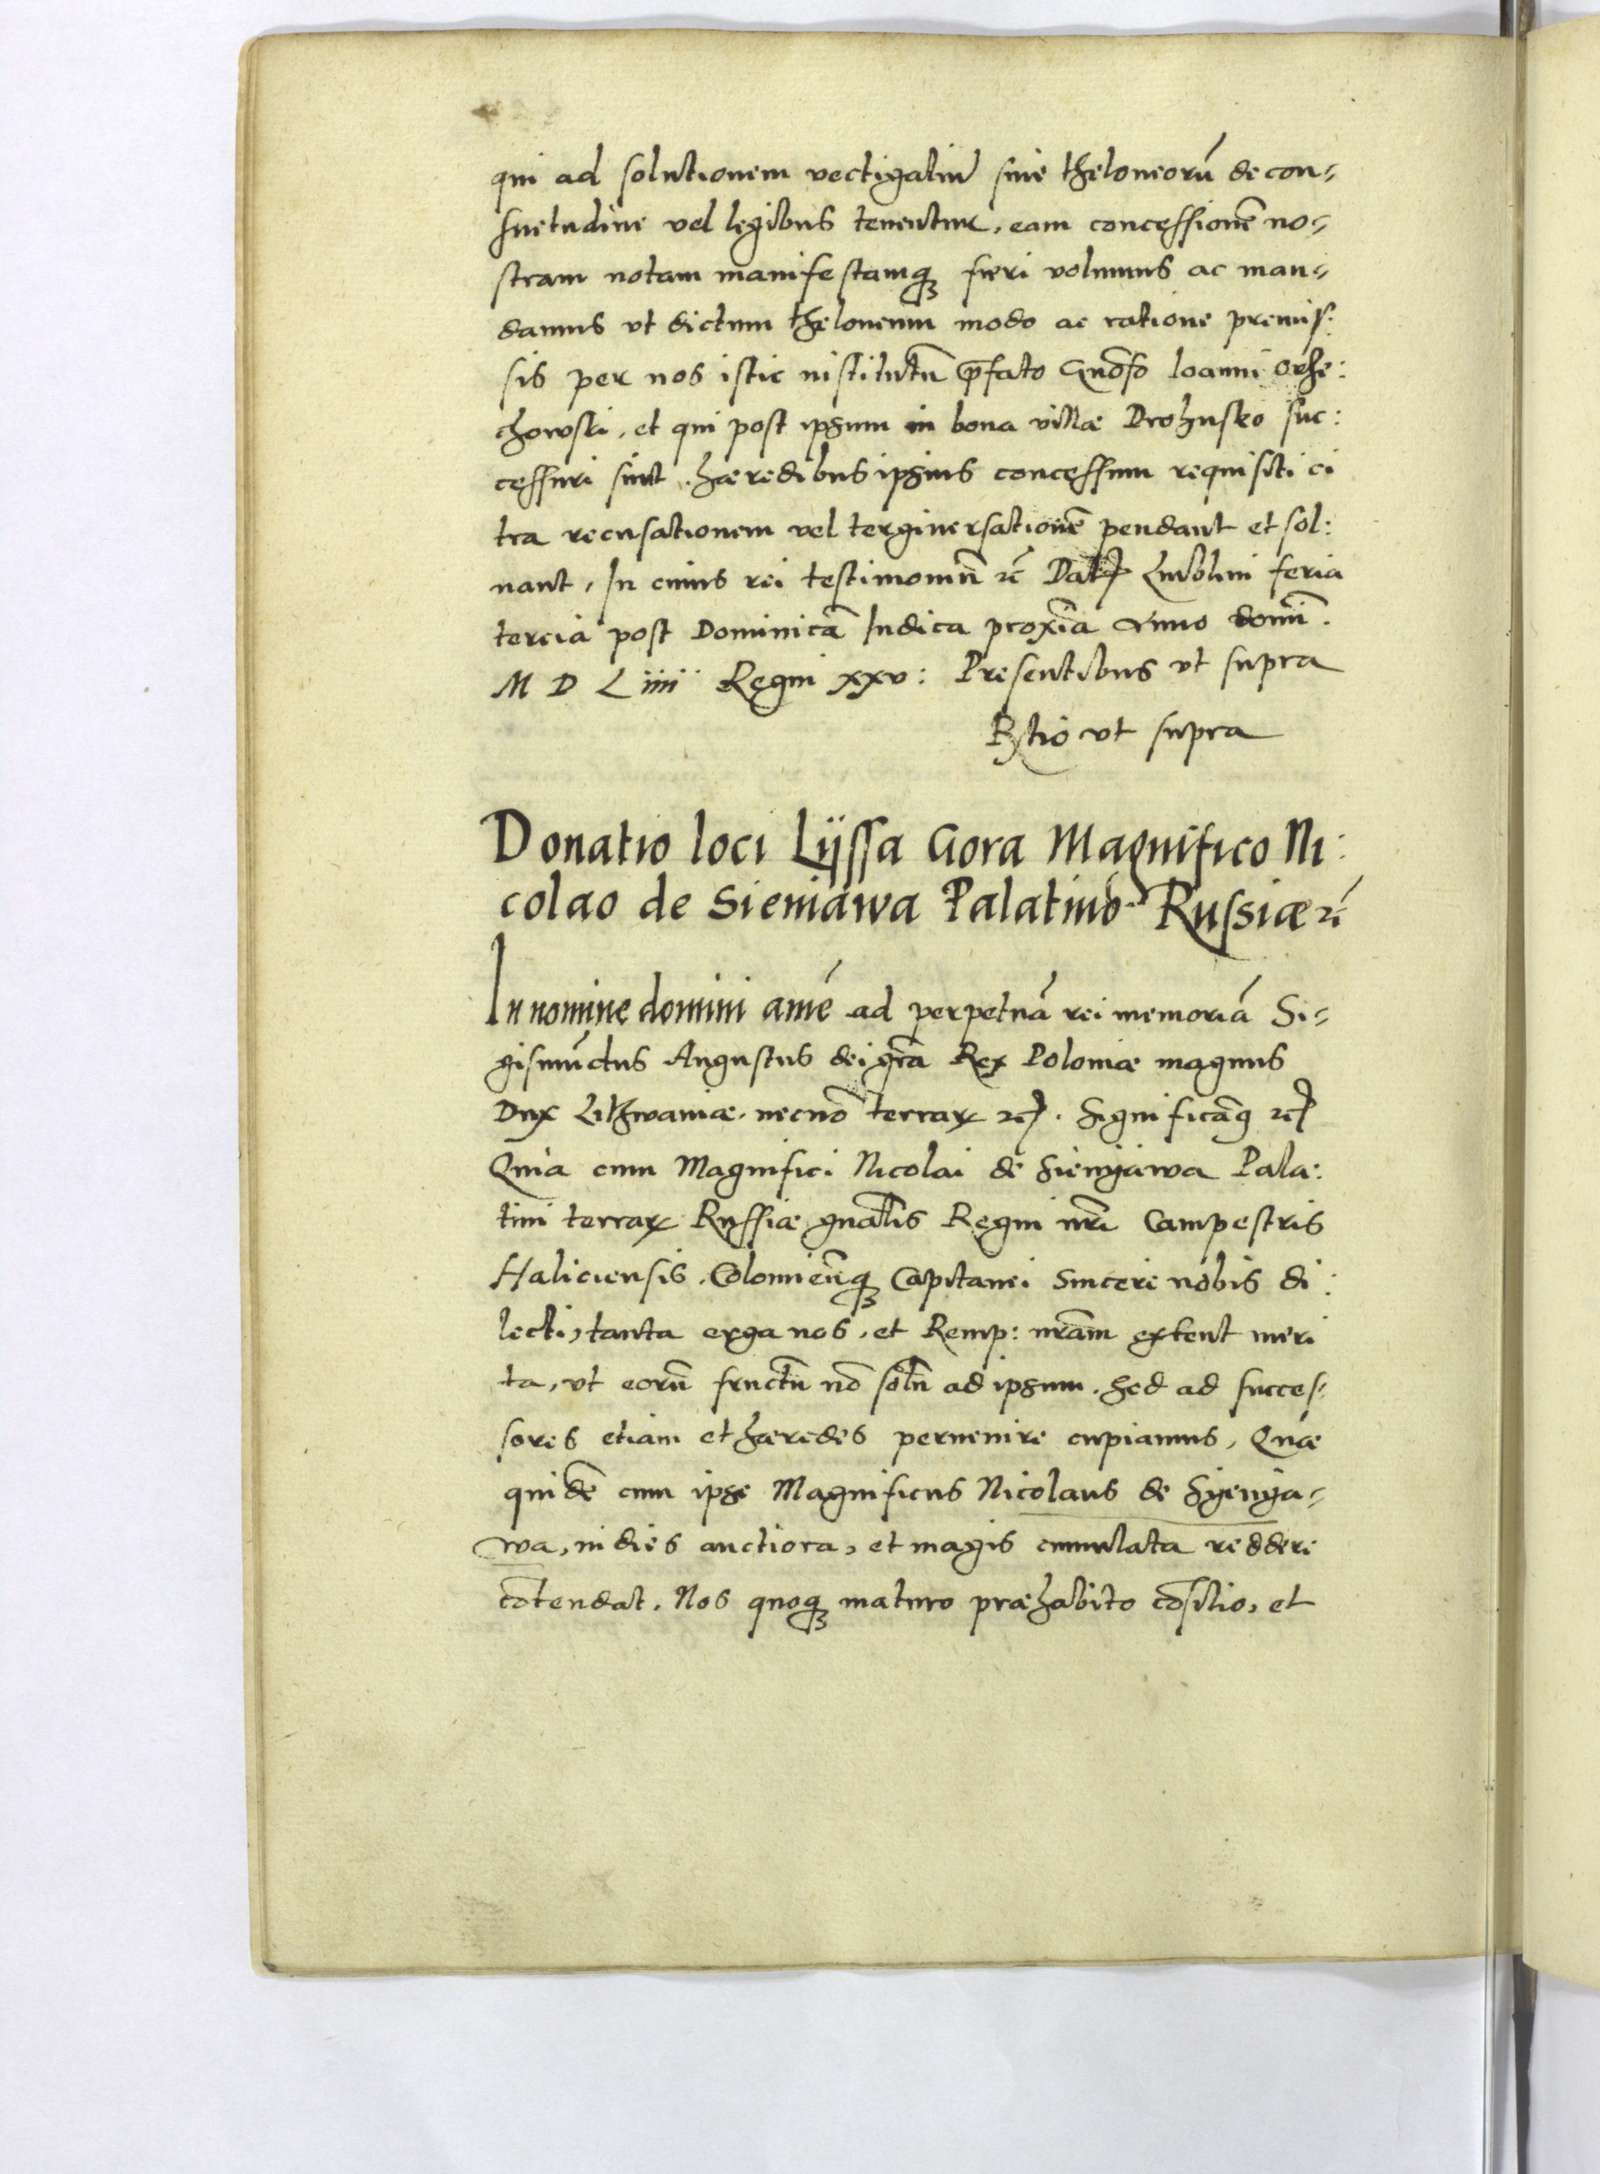 qui ad solutionem vectigaliũ siue theloneorũ de con-
suetudine vel legibus tenentur, eam concessionẽ no-
stram notam manifestamq fieri volumus ac man-
damus vt dictum theloneum modo ac ratione premis:
sis per nos istic institutũ p̃fato Gn̄oso Ioanni Orze:
chowski, et qui post ipsum in bona villæ Drohusko suc:
cessuri sunt hæredibus ipsius concessum requisiti ci
tra recusationem vel tergiuersationẽ pendant et sol:
uant, In cuius rei testimoniũ ꝛc̃ Datꝭ Lublini feria
tercia post Dominicã Iudica proximã Anno domĩ.
M D L iiii Regni xxv: Presentibus vt supra
Rltio vt supra
Donatio loci Lyssa Gora Magnifico Ni:
colao de Sieniawa Palatino Russiæ ꝛc̃
In nomine domini amẽ ad perpetuã rei memoriã Si-
gismũdus Augustus dei gr̃a Rex Poloniæ magnus
Dux Lithwaniæ, necnõ terraꝝ ꝛcꝭ. Significamꝰ ꝛcꝭ
Quia cum Magnifici Nicolai de Sienyawa Pala:
tini terraꝝ Russiæ gñalis Regni nr̃i Campestris
Haliciensis, Colomieñq Capitanei Sincere nobis di:
lecti, tanta erga nos, et Remp: nr̃am extent meri
ta, vt eorũ fructũ nõ solũ ad ipsum, sed ad succes:
sores etiam et hæredes peruenire cupiamus, Quæ
quidẽ cum ipse Magnificus Nicolaus de Syenya-
wa, in dies auctiora, et magis cumulata reddere
cõtendat, Nos quoq maturo præhabito cõsilio, et